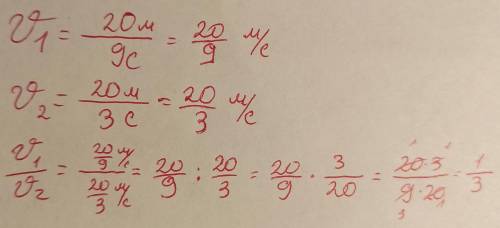 V₁ = 20м/9с = 20/9 м/с
V₂ = 20м/3с = 20/3 м/с
V₁/V₂ = (20/9 м/с)/(20/3 м/с) = 20/9 : 20/3 = 20/9 · 3/20 = 20·3/9·20 = 1/3